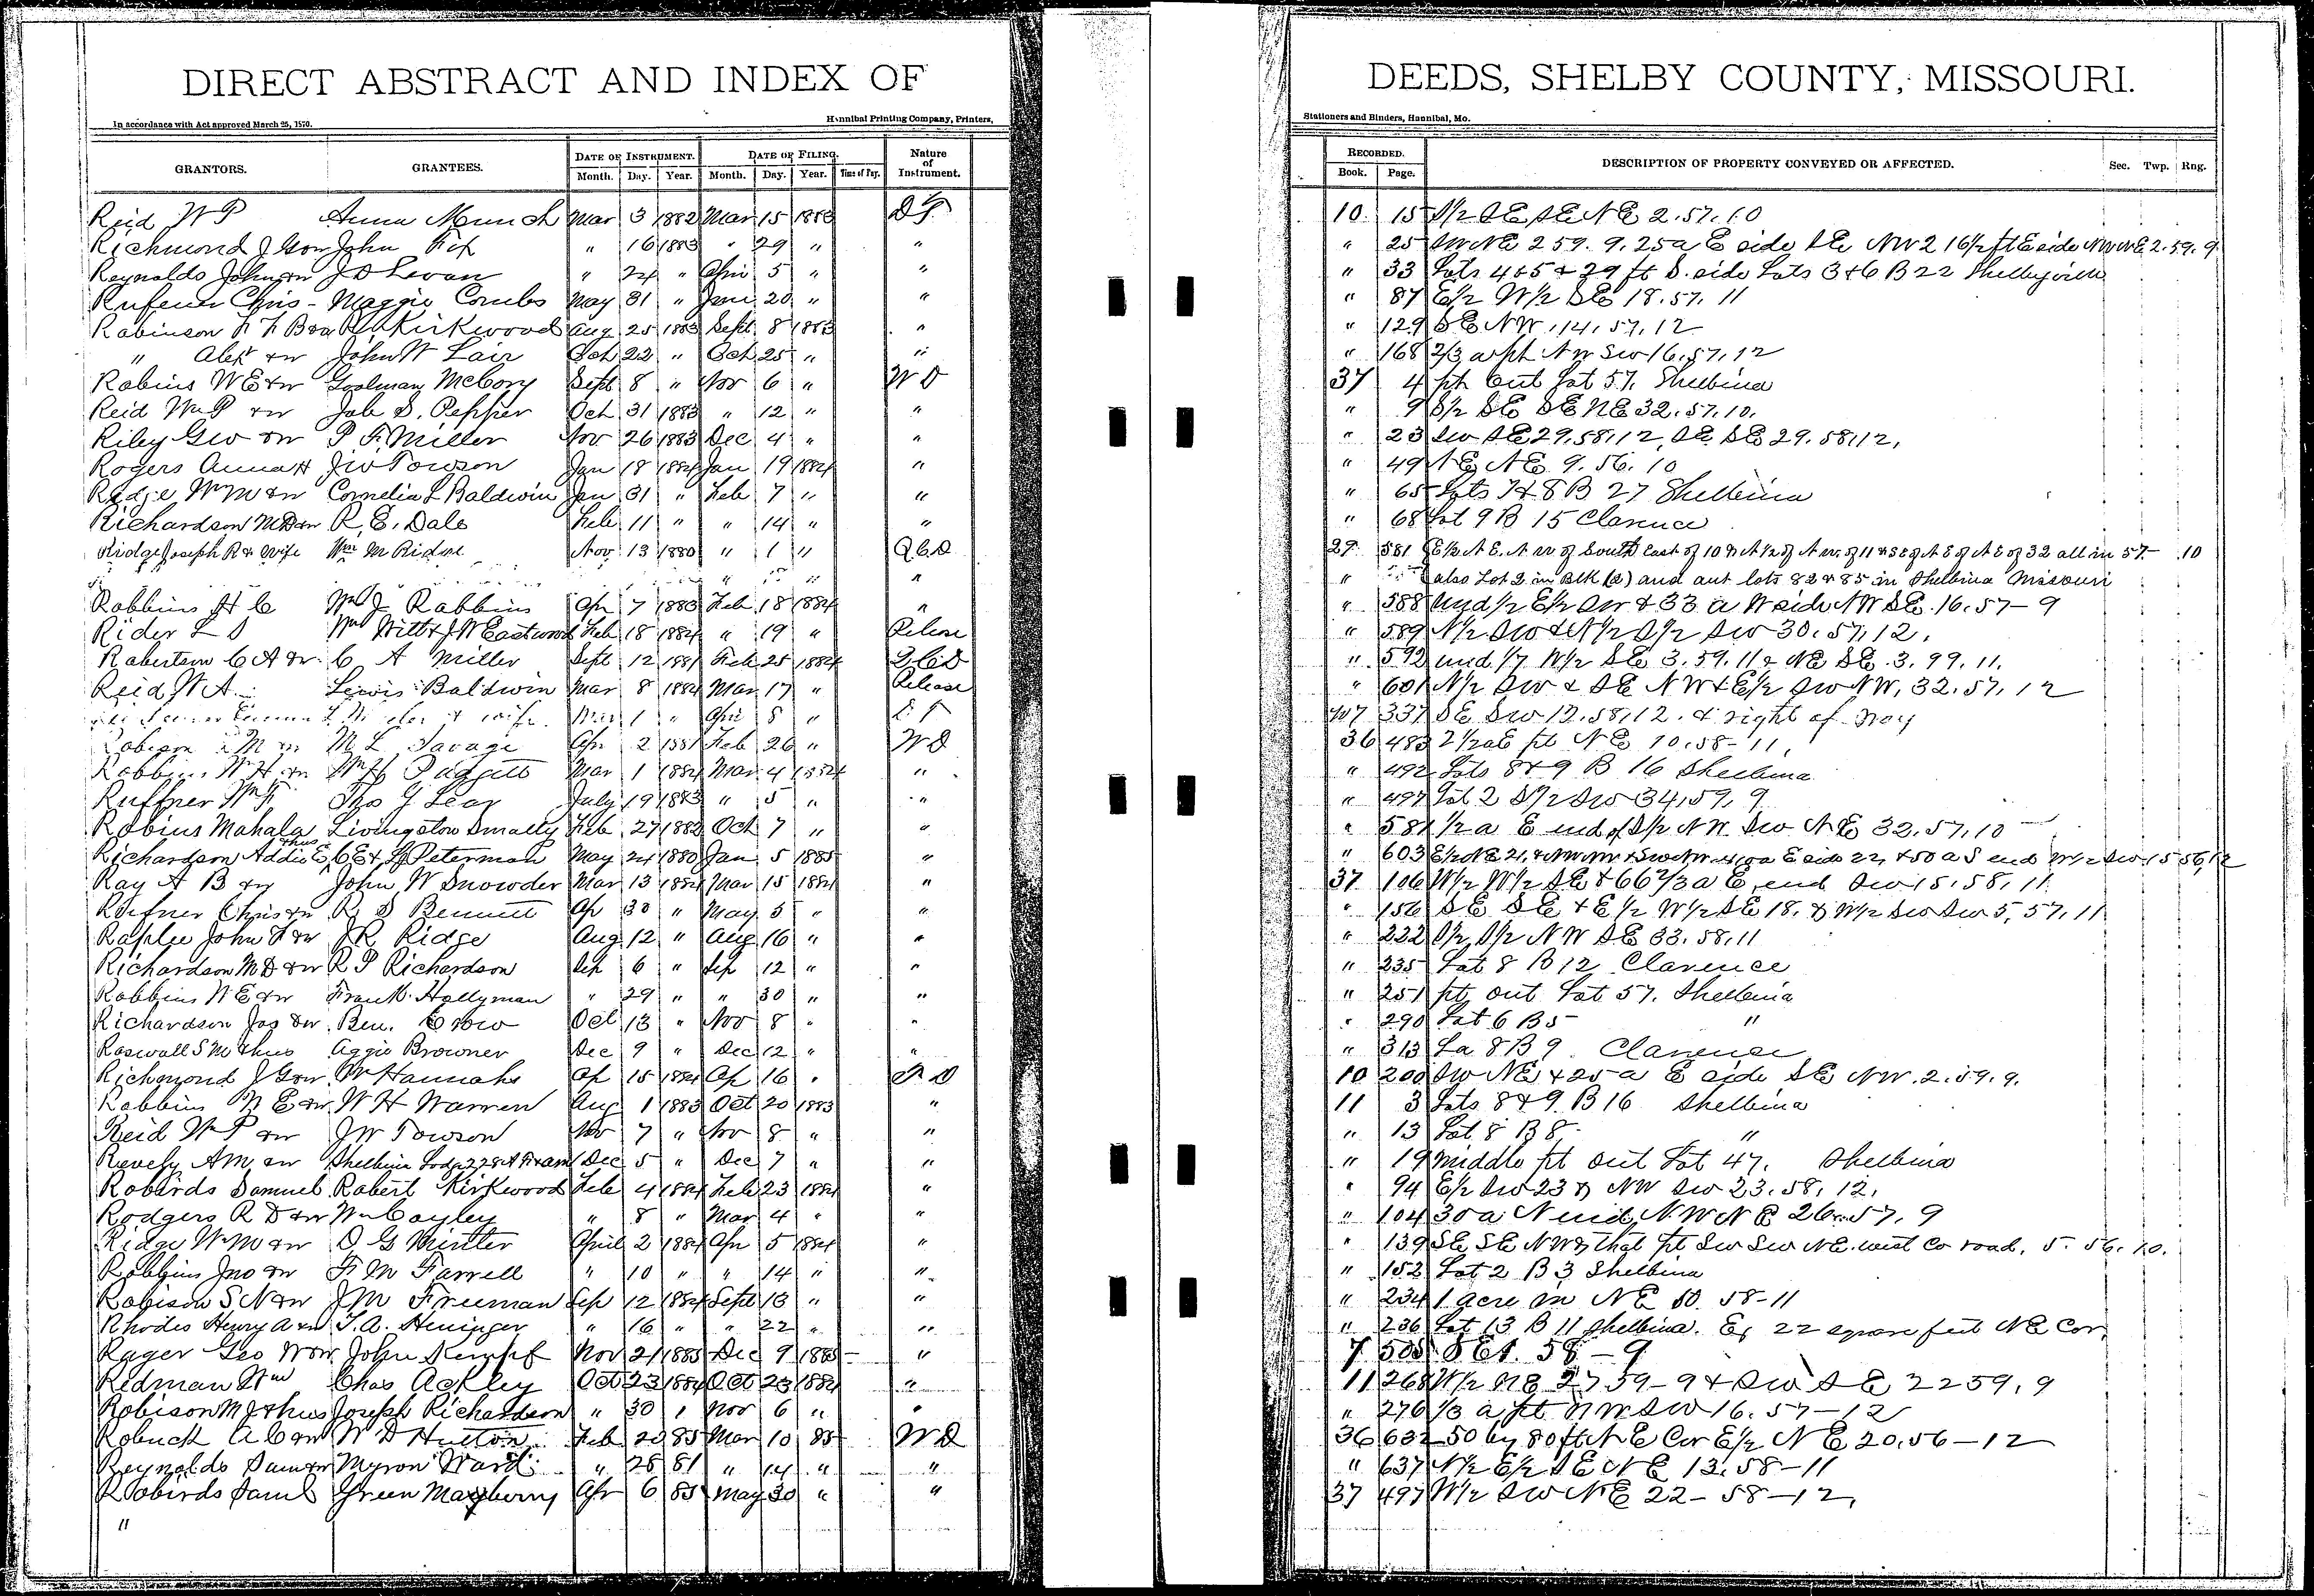 DIRECT ABSTRACT AND INDEX OF DEEDS, SHELBY COUNTY, MISSOURI.
In accordance with Act approved March 25, 1870. Hannibal Printing Company, Printers, Stationers and Binders, Hannibal, Mo.
GRANTORS. GRANTEES. DATE OF INSTRUMENT. DATE OF FILING. Nature of Instrument. RECORDED. DESCRIPTION OF PROPERTY CONVEYED OR AFFECTED. Sec. Twp. Rng.
Month. Day. Year. Month. Day. Year. Book. Page.
Reid W P Anna Munch Mar 3 1882 Mar 15 1883 10 15 S/2 SE SE NE 2.57.10
Richmond J G &w John Fox " 16 1883 " 29 " " " 25 SW NE 2 59. 9. 25a E side SE NW 2 16½ ft E side NW NE 2.59.9
Reynolds John &w J D Levan " 24 " Apri 5 " " " 33 Lots 4&5 & 29 ft S. side Lots 3&6 B 22 Shelbyville
Rufener Chris - Maggie Combs May 31 " June 20 " " " 87 E½ W½ SE 18.57.11
Robinson F F B &w R Kirkwood Aug 25 1883 Sept 8 1883 " " 129 SE NW 14.57.12
" Alex &w John W Lair Oct 22 " Oct 25 " " " 168 2/3 a pt NW SW 16.57.12
Robins W E &w Goolman McCory Sept 8 " Nov 6 " W D 37 4 pt out Lot 57. Shelbina
Reid Wm P &w Job S. Pepper Oct 31 1883 " 12 " " " 9 S½ SE SE NE 32.57.10.
Riley Geo &w P F. Miller Nov 26 1883 Dec 4 " " " 23 SW SE 29.58.12, SE SE 29.58.12,
Rogers Anna H J W Towson Jan 18 1884 Jan 19 1884 " " 49 NE NE 9.56.10
Ridge Wm M &w Cornelia L Baldwin Jan 31 " Feb 7 " " " 65 Lots 7&8 B 27 Shelbina
Richardson M D &w R. E. Dale Feb 11 " " 14 " " " 68 Lot 9 B 15 Clarence
Ridge Joseph R & Wife Wm M Ridge Nov 13 1880 " 1 " Q.C.D 29 581 E½ N E. N W of South East of 10 & N½ of N W. of 11 & SE of N E of N E of 32 all in 57- 10
" " " " also Lot 2 in Blk (2) and out lots 82 & 85 in Shelbina Missouri
Robbins H C Wm J Robbins Apr 7 1883 Feb 18 1884 " " 588 und ½ E½ SW & 33 a W side NW SE. 16.57-9
Rider L S Wm Witt & J W Eastwood Feb 18 1884 " 19 " Release " 589 N½ SW & N½ S½ SW 30.57.12.
Robertson C A &w. C A Miller Sept 12 1881 Feb 25 1884 Q C D " 592 und 1/7 W½ SE 3.59.11 & NE SE. 3.99.11.
Reid W A Lewis Baldwin Mar 8 1884 Mar 17 " Release " 601 N½ SW & SE NW & E½ SW NW, 32.57.12
& wife. Mar 1 " Apri 8 " 337 SE SW 12.58.12. & right of way
Robison &w M L Savage Apr 2 1881 Feb 26 " W D 36 483 2½a E pt NE 10.58-11,
Robbins W H &w Wm H Padgett Mar 1 1884 Mar 4 1884 " " 492 Lots 8&9 B 16 Shelbina
Ruffner Wm F Thos J Lear July 19 1883 " 5 " " " 497 Lot 2 S½ SW 34.59.9
Robins Mahala Livingston Smalley Feb 27 1882 Oct 7 " " " 581 ½ a E end of S½ NW SW NE 32.57.10
Richardson Addie E & hus C E & Peterman May 24 1880 Jan 5 1885 " " 603 E½ NE 21, & NW NW & SW NW E side 22, & 50 a S end W½ SW 15 56,12
Ray A B &w John W Snowder Mar 13 1884 Mar 15 1884 " 37 106 W½ W½ SE & 66 2/3 a E. end SW 15.58.11.
Rufner Chris &w R S Bennett Ap 30 " May 5 " " " 156 SE SE & E½ W½ SE 18. & W½ SW SW 5.57.11
Raplee John F &w J R Ridge Aug 12 " Aug 16 " " " 222 S½ S½ NW SE 33.58.11
Richardson M D &w R P Richardson Sep 6 " Sep 12 " " " 235 Lot 8 B 12 Clarence
Robbins W E &w Frank Hollyman " 29 " " 30 " " " 251 pt out Lot 57. Shelbina
Richardson Jas &w. Ben. Crow Oct 13 " Nov 8 " " " 290 Lot 6 B 5 "
Roswall S M & hus Aggie Browner Dec 9 " Dec 12 " " " 313 La 8 B 9 Clarence
Richmond J G &w. W Hannahs Ap 15 1884 Ap 16 " 10 200 SW NE & 25 a E side SE NW. 2.59.9.
Robbins W E &w W H Warren Aug 1 1883 Oct 20 1883 " 11 3 Lots 8&9. B 16 Shelbina
Reid Wm P &w J W Towson Nov 7 " Nov 8 " " " 13 Lot 8 B 8 "
Revely A M &w Shelbina Lodge 228 A F & AM Dec 5 " Dec 7 " " " 19 middle pt out Lot 47. Shelbina
Robirds Samuel Robert Kirkwood Feb 4 1884 Feb 23 1884 " " 94 E½ SW 23 & NW SW 23.58.12.
Rodgers R D &w Wm Cayley " 8 " Mar 4 " " " 104 30 a N end NW NE 26.57.9
Ridge Wm M &w D G Minter April 2 1884 Apr 5 1884 " " 139 SE SE NW & that pt SW SW NE. west Co road. 5.56.10.
Robbins Jno &w F M Farrell " 10 " " 14 " " " 152 Lot 2 B 3 Shelbina
Robison S N &w J M Freeman Sep 12 1884 Sept 13 " " " 234 1 acre in NE 10. 58-11
Rhodes Henry A &w T. A. Heninger " 16 " " 22 " " " 236 Lot 13 B 11 Shelbina. Ex 22 square feet NE Cor.
Rager Geo W &w John Kempf Nov 21 1885 Dec 9 1885 " 7 505 SE 1. 58-9
Redman Wm Chas Ackley Oct 23 1884 Oct 23 1884 " 11 268 W½ NE 27 59-9 & SW SE 22 59.9
Robison M J & hus Joseph Richardson " 30 " Nov 6 " " " 276 1/3 a pt NW SW 16.57-12
Robuck A C &w W D Hutton Feb 20 85 Mar 10 85 W D 36 632 50 by 80 ft NE Cor E½ NE 20.56-12
Reynolds Sam &w Myron Ward " 28 81 " 14 " " " 637 N½ E½ SE NE 13.58-11
Robirds Saml Green Mayberry Apr 6 85 May 30 " " 37 497 W½ SW NE 22-58-12,
"